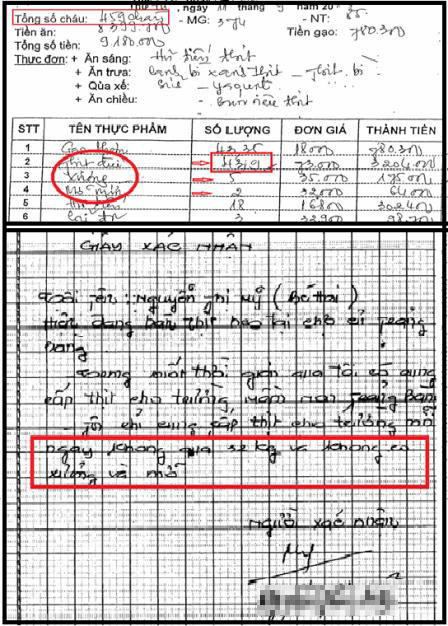 ngày 11 tháng 9 năm 20
Tổng số cháu: 459 cháu - MG: 374 - NT: 85
Tiền ăn: 8399.700 Tiền gạo: 780.300
Tổng số tiền: 9180.000
Thực đơn: + Ăn sáng:
+ Ăn trưa: Canh bí xanh thịt - Thịt
+ Quà xế: - yaourt
+ Ăn chiều: - Bún riêu thịt
STT TÊN THỰC PHẨM SỐ LƯỢNG ĐƠN GIÁ THÀNH TIỀN
1 43,35 18000 780.300
2 Thịt đùi 43,9 73.000 3204.000
3 Xương 5 35.000 175.000
4 Mỡ 2 32000 64.000
5 18 16800 302400
6 3 32.900 98.700
GIẤY XÁC NHẬN
Tôi tên: Nguyễn Thị Mỹ (Bé Hai)
Hiện đang bán thịt heo tại chợ
Bàng
Trong một thời gian qua tôi có cung
cấp thịt cho trường mầm non
Tôi chỉ cung cấp thịt cho trường mỗi
ngày không quá 32 kg và không có
xương và mỡ
Người xác nhận
My